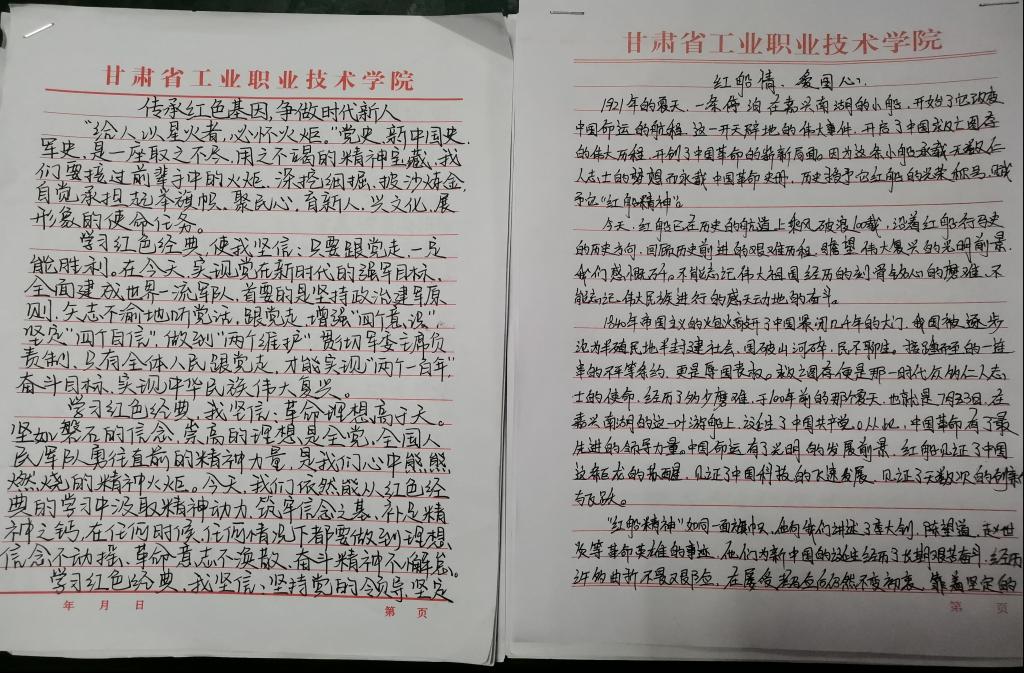 甘肃省工业职业技术学院
传承红色基因,争做时代新人
"给人以星火者,必怀火炬。"党史、新中国史、
军史,是一座取之不尽、用之不竭的精神宝藏,我
们要接过前辈手中的火炬、深挖细掘、披沙炼金,
自觉承担起举旗帜、聚民心、育新人、兴文化、展
形象的使命任务。
学习红色经典,使我坚信:只要跟党走,一定
能胜利。在今天,实现党在新时代的强军目标、
全面建成世界一流军队,首要的是坚持政治建军原
则,矢志不渝地听党话、跟党走,增强"四个意识"、
坚定"四个自信"、做到"两个维护"贯彻军委主席负
责制,只有全体人民跟党走,才能实现"两个一百年"
奋斗目标、实现中华民族伟大复兴。
学习红色经典,我坚信:革命理想高于天。
坚如磐石的信念,崇高的理想是全党、全国人
民军队勇往直前的精神力量,是我们心中熊熊
燃烧的精神火炬。今天,我们依然能从红色经
典的学习中汲取精神动力、筑牢信念之基、补足精
神之钙,在任何时候、任何情况下都要做到理想
信念不动摇、革命意志不涣散、奋斗精神不懈怠。
学习红色经典,我坚信:坚持党的领导、坚定
年 月 日 第 页
甘肃省工业职业技术学院
红船情、爱国心
1921年的夏天,一条停泊在嘉兴南湖的小船,开始了它改变
中国命运的航程,这一开天辟地的伟大事件,开启了中国救亡图存
的伟大历程,开创了中国革命的崭新局面。因为这条小船承载无数仁
人志士的梦想而承载中国革命史册,历史授予它红船的光荣称号,赋
予它"红船精神"。
今天,红船已在历史的航道上乘风破浪100载,沿着红船行驶
的历史方向,回顾历史前进的艰难历程,瞻望伟大复兴的光明前景,
我们感慨万千。不能忘记伟大祖国经历的刻骨铭心的磨难,不
能忘记伟大民族进行的感天动地的奋斗。
1840年帝国主义的炮火敲开了中国紧闭几千年的大门,我国被逐步
沦为半殖民地半封建社会,国破山河碎,民不聊生。
的不平等条约,更是辱国丧权。救亡图存便是那一时代仁人志
士的使命,经历了的少磨难,于100年前的那个夏天,也就是7月23日,在
嘉兴南湖的这一叶游船上,诞生了中国共产党。从此,中国革命有了最
先进的领导力量。中国命运有了光明的发展前景,红船见证了中国
这条巨龙的苏醒,见证了中国科技的飞速发展,见证了无数次的创
与飞跃。
"红船精神"如同一面旗帜,他向我们讲述了李大钊、陈望道、赵世
炎等革命英雄的事迹,他们为新中国的诞生经历了长期艰苦奋斗,经历
许的曲折不易艰险,在屡受仍然不变初衷,靠着坚定的
第 页